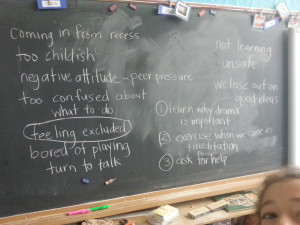 Coming in from recess
too childish
negative attitude - peer pressure
too confused about
what to do
feeling excluded
bored of playing
turn to talk
not learning
unsafe
we lose out on
good ideas
① learn why drama
is important
② exercise when we come in
meditation
③ ask for help